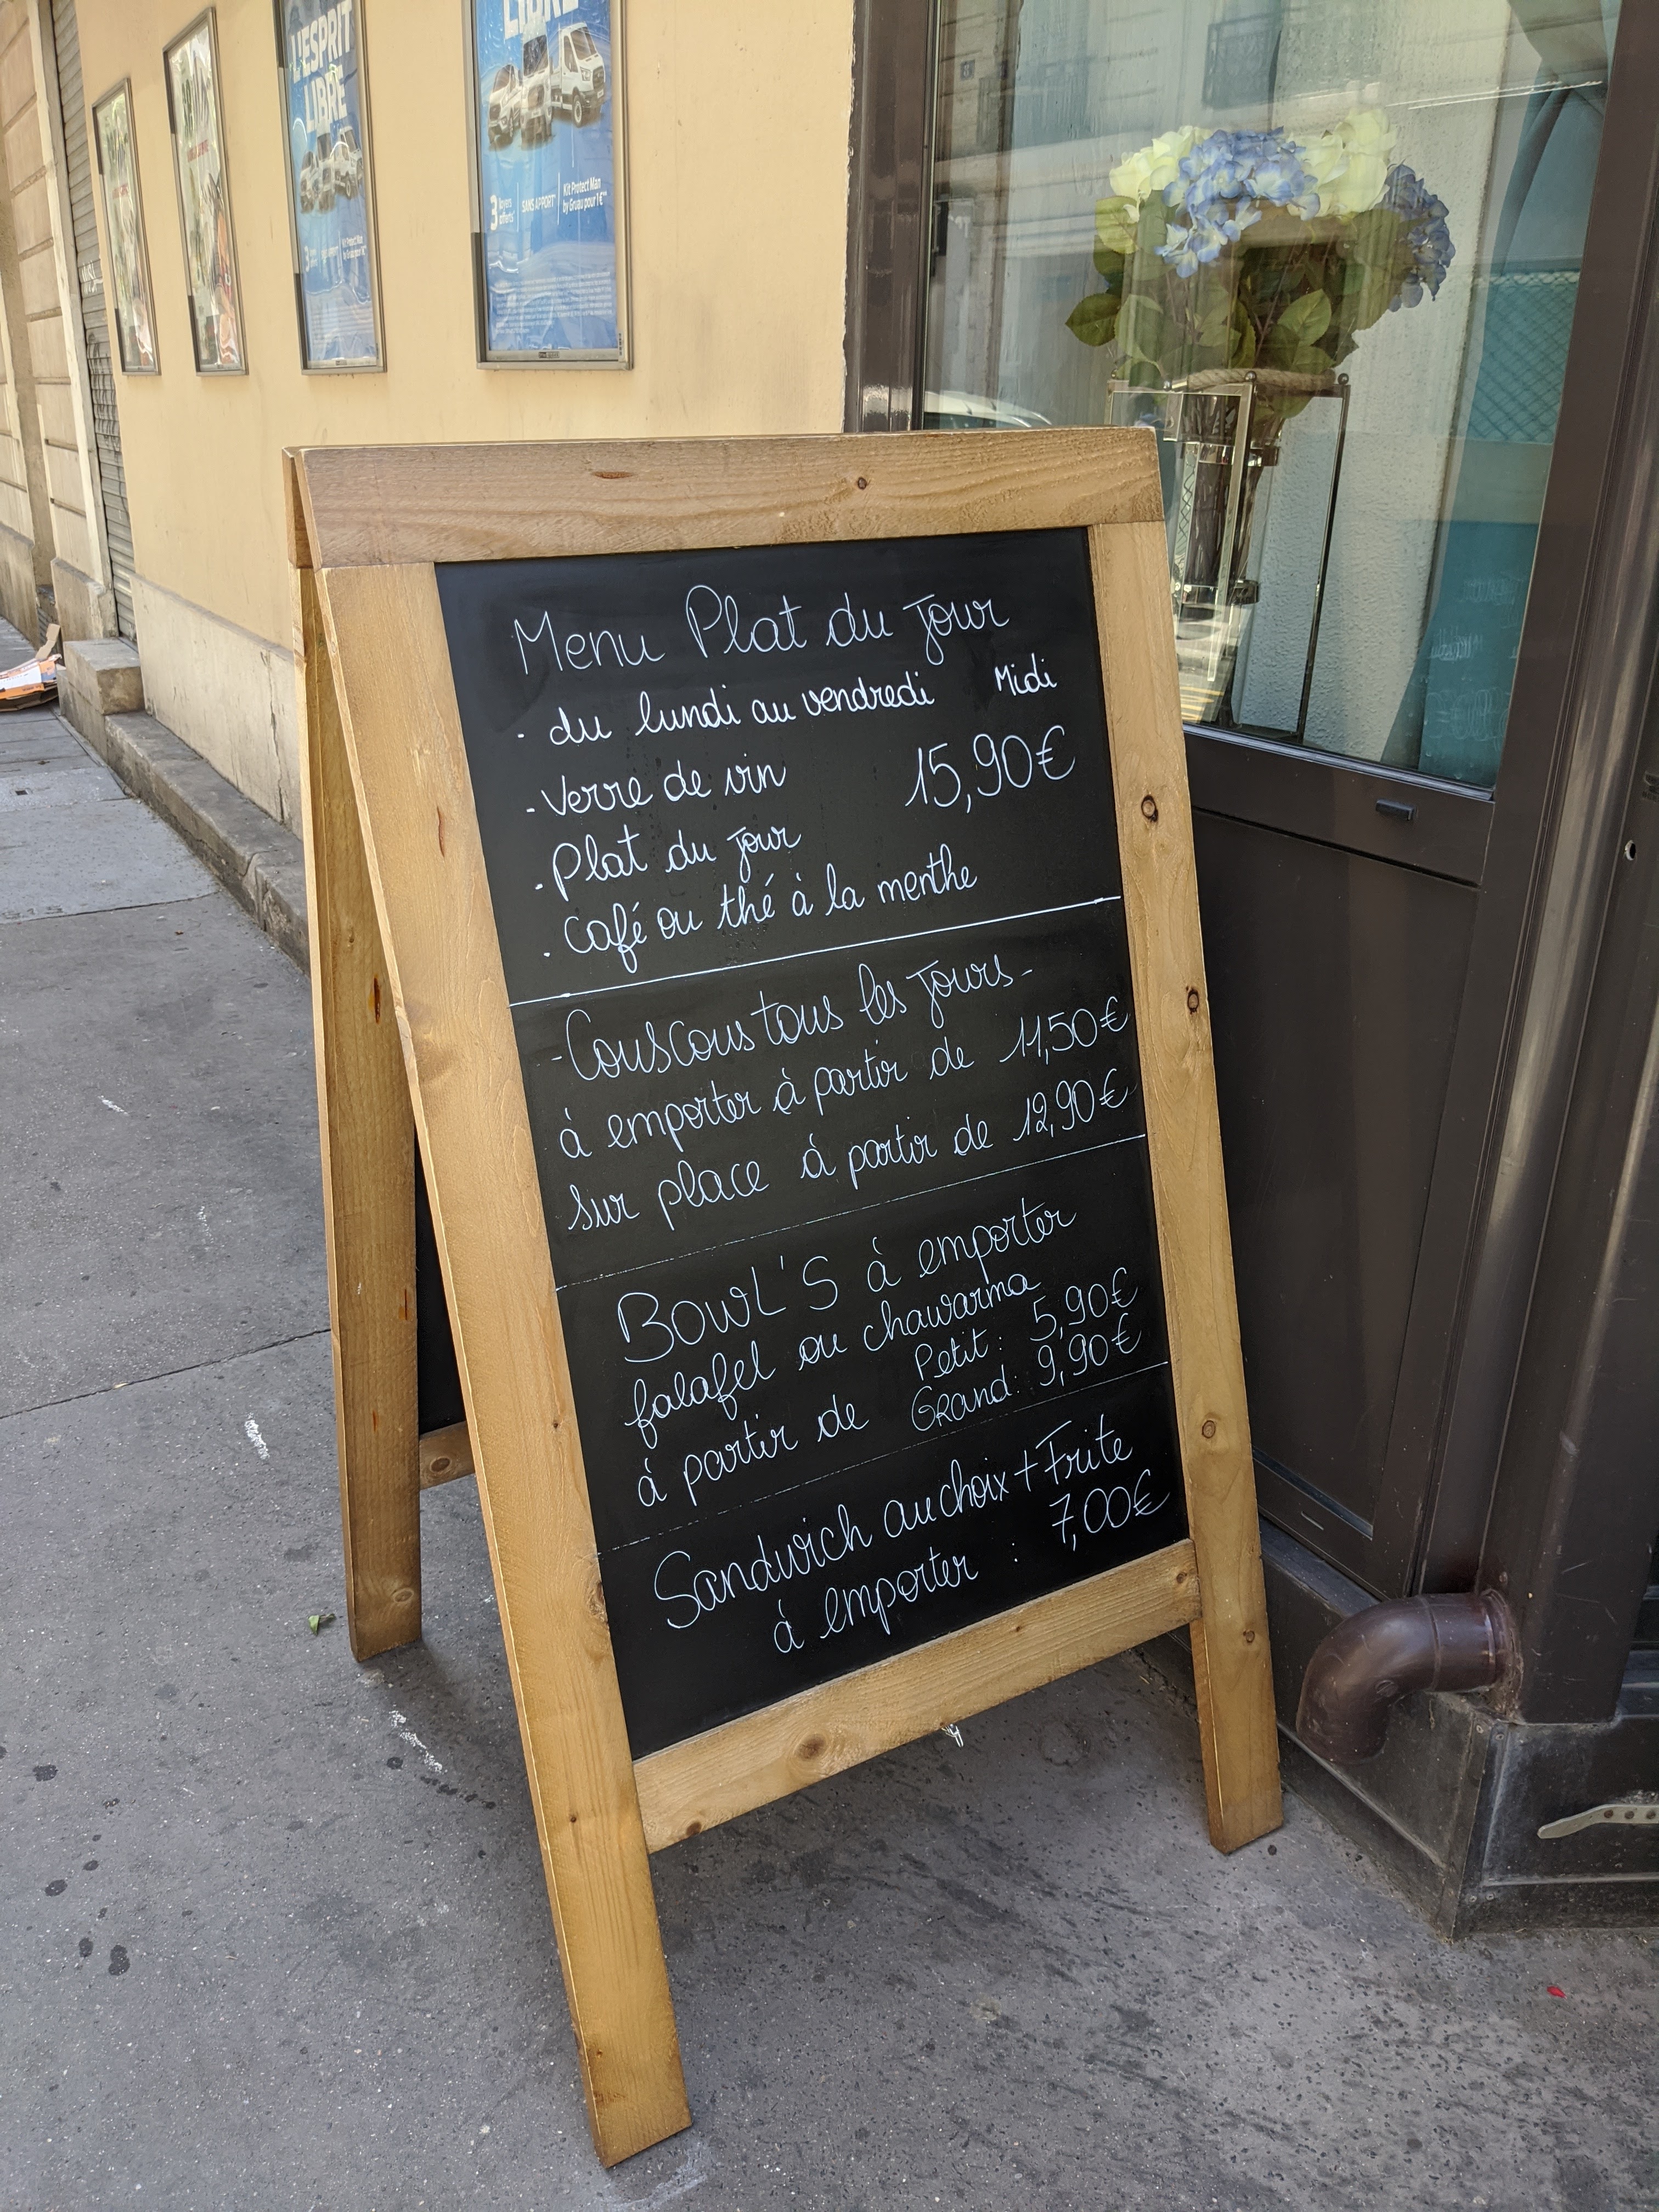 L'ESPRIT
LIBRE
LIBRE
3 loyers offerts
SANS APPORT
Kit Protect Man
by Gruau pour 1€
Menu Plat du jour
. du lundi au vendredi Midi
- Verre de vin 15,90€
. Plat du jour
. Café ou thé à la menthe
- Couscous tous les jours -
à emporter à partir de 11,50€
sur place à partir de 12,90€
BOWL'S à emporter
falafel ou chawarma
à partir de Petit : 5,90€
Grand : 9,90€
Sandwich au choix + Frite
à emporter : 7,00€